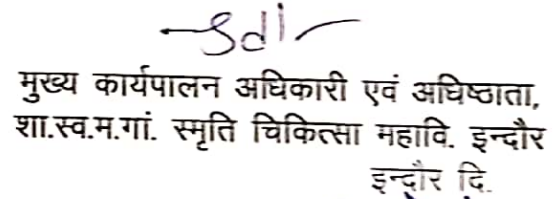 Sdl
मुख्य कार्यपालन अधिकारी एवं अधिष्ठाता,
शा.स्व.म.गां. स्मृति चिकित्सा महावि. इन्दौर
इन्दौर दि.